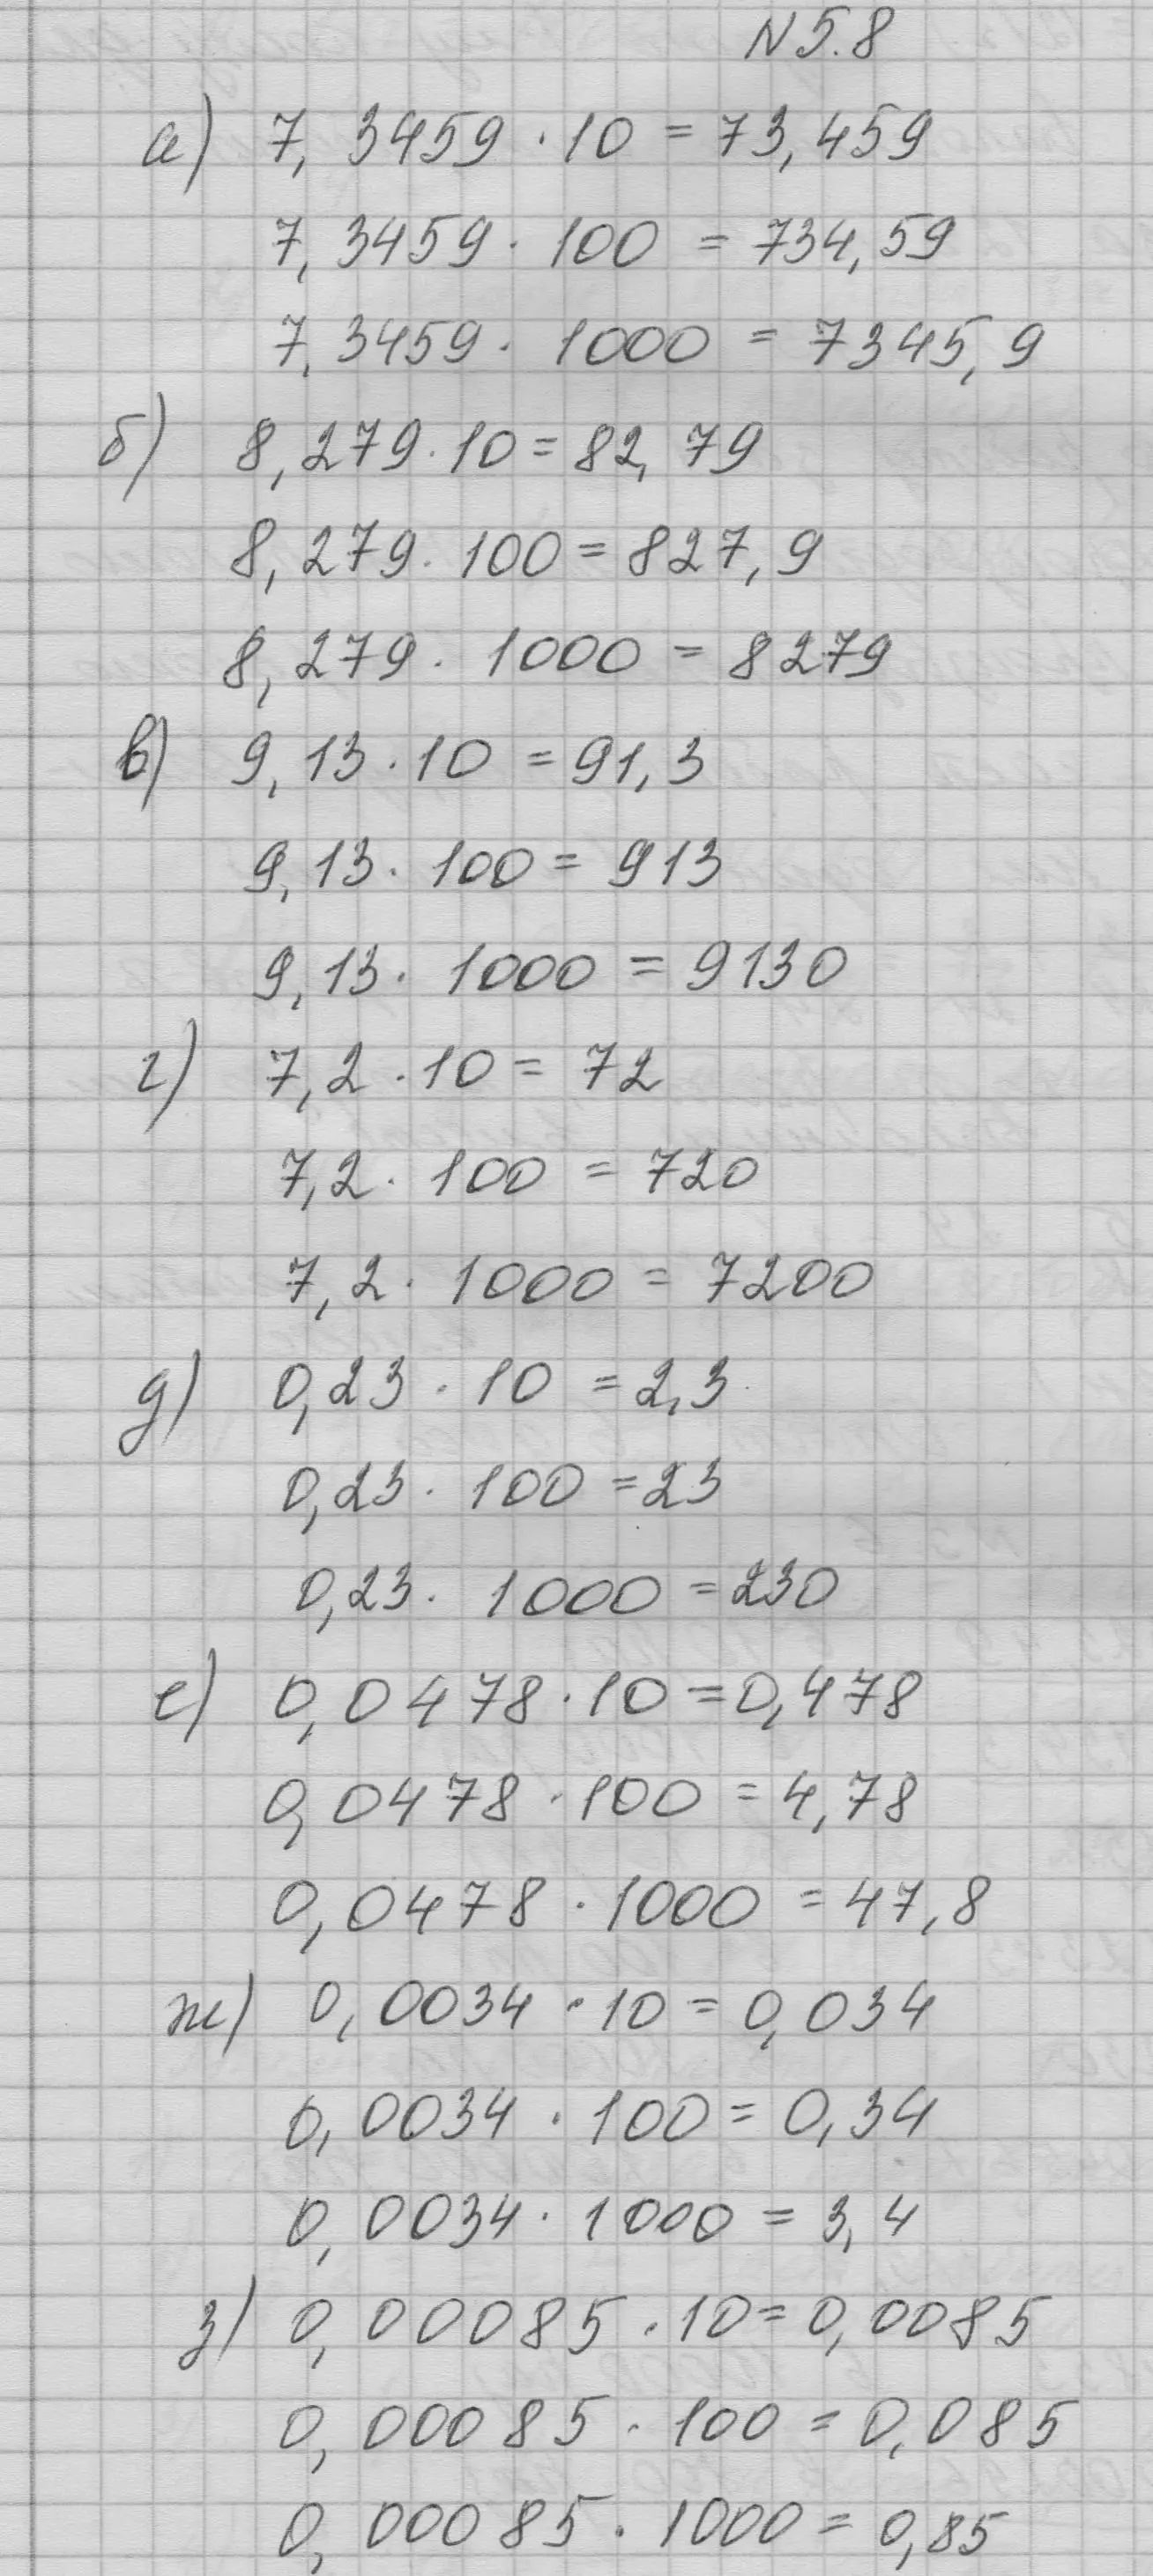 N 5.8
а) 7,3459 · 10 = 73,459
7,3459 · 100 = 734,59
7,3459 · 1000 = 7345,9
б) 8,279 · 10 = 82,79
8,279 · 100 = 827,9
8,279 · 1000 = 8279
в) 9,13 · 10 = 91,3
9,13 · 100 = 913
9,13 · 1000 = 9130
г) 7,2 · 10 = 72
7,2 · 100 = 720
7,2 · 1000 = 7200
д) 0,23 · 10 = 2,3
0,23 · 100 = 23
0,23 · 1000 = 230
е) 0,0478 · 10 = 0,478
0,0478 · 100 = 4,78
0,0478 · 1000 = 47,8
ж) 0,0034 · 10 = 0,034
0,0034 · 100 = 0,34
0,0034 · 1000 = 3,4
з) 0,00085 · 10 = 0,0085
0,00085 · 100 = 0,085
0,00085 · 1000 = 0,85